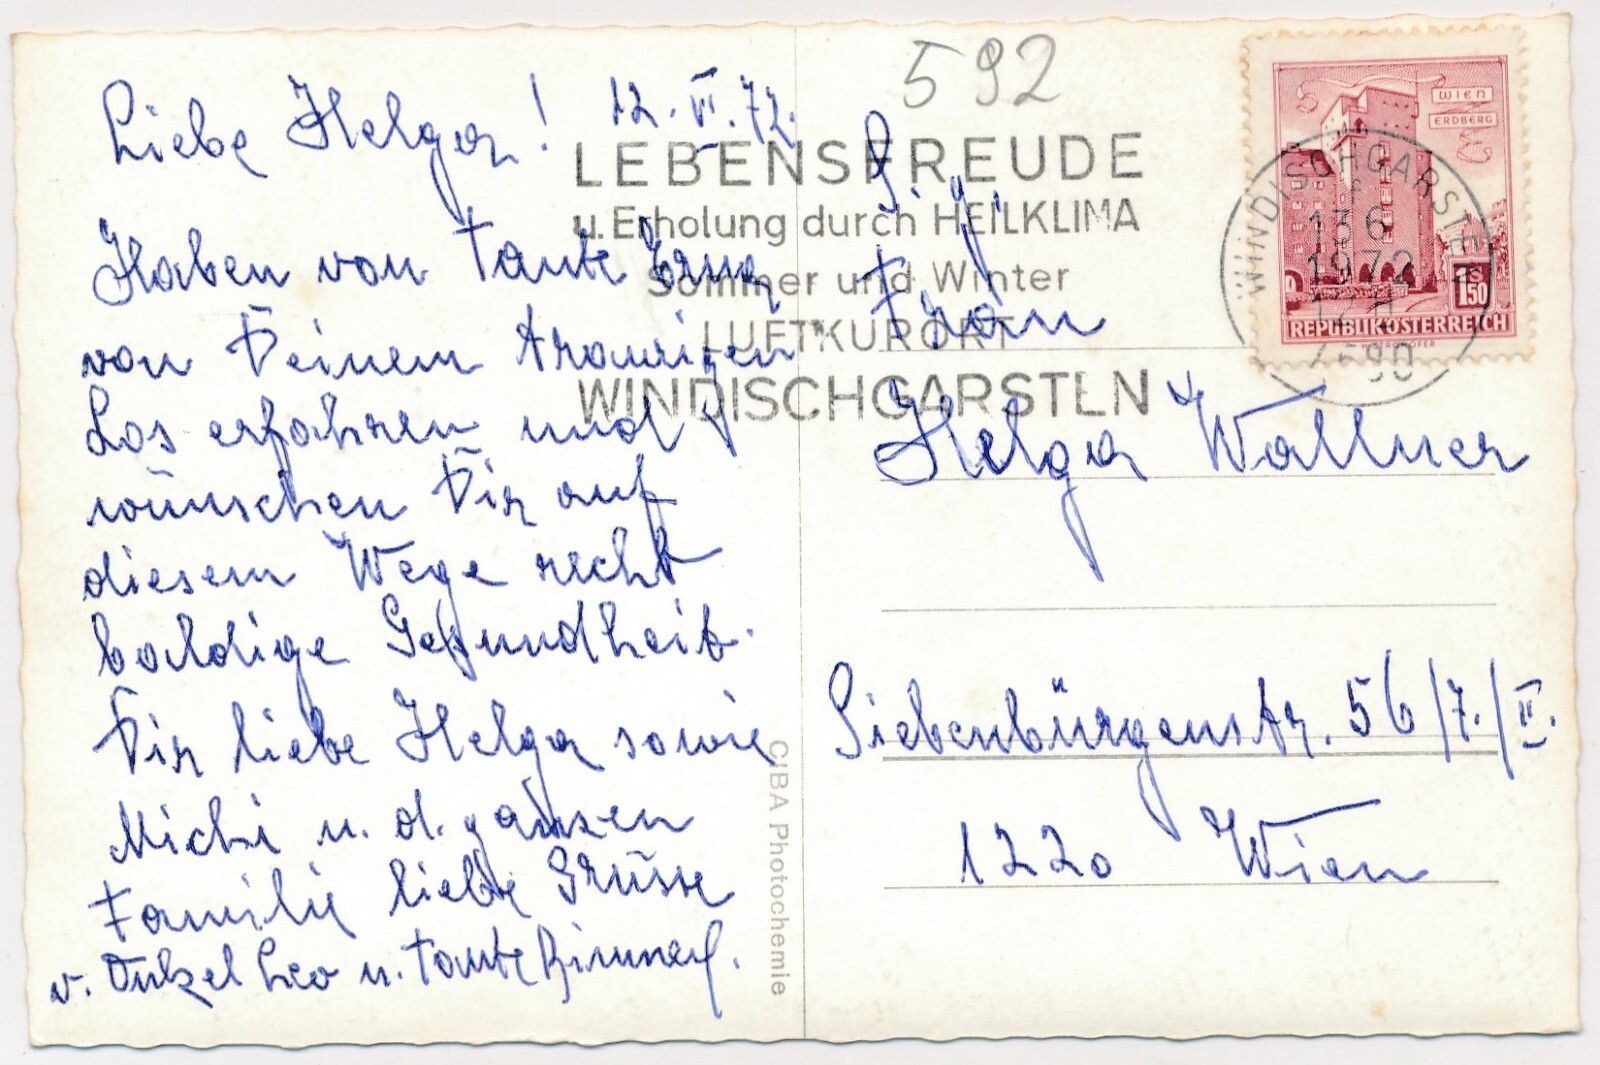 592
Liebe Helga! 12.VI.72.
Haben von Tante Erna
von Deinem traurigen
Los erfahren und
wünschen Dir auf
diesem Wege recht
baldige Gesundheit.
Dir liebe Helga sowie
Michi u. d. ganzen
Familie liebe Grüsse
v. Onkel Leo u. Tante
LEBENSFREUDE
u. Erholung durch HEILKLIMA
Sommer und Winter
LUFTKURORT
WINDISCHGARSTEN
WIEN
ERDBERG
1.50
REPUBLIK ÖSTERREICH
WINDISCHGARSTEN
13 6
1972
4580
Frau
Helga Wallner
Siebenbürgenstr. 56/7./II.
1220 Wien
CIBA Photochemie